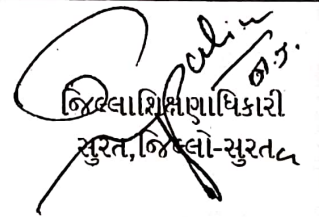 જિલ્લાશિક્ષણાધિકારી
સુરત,જિલ્લો-સુરત